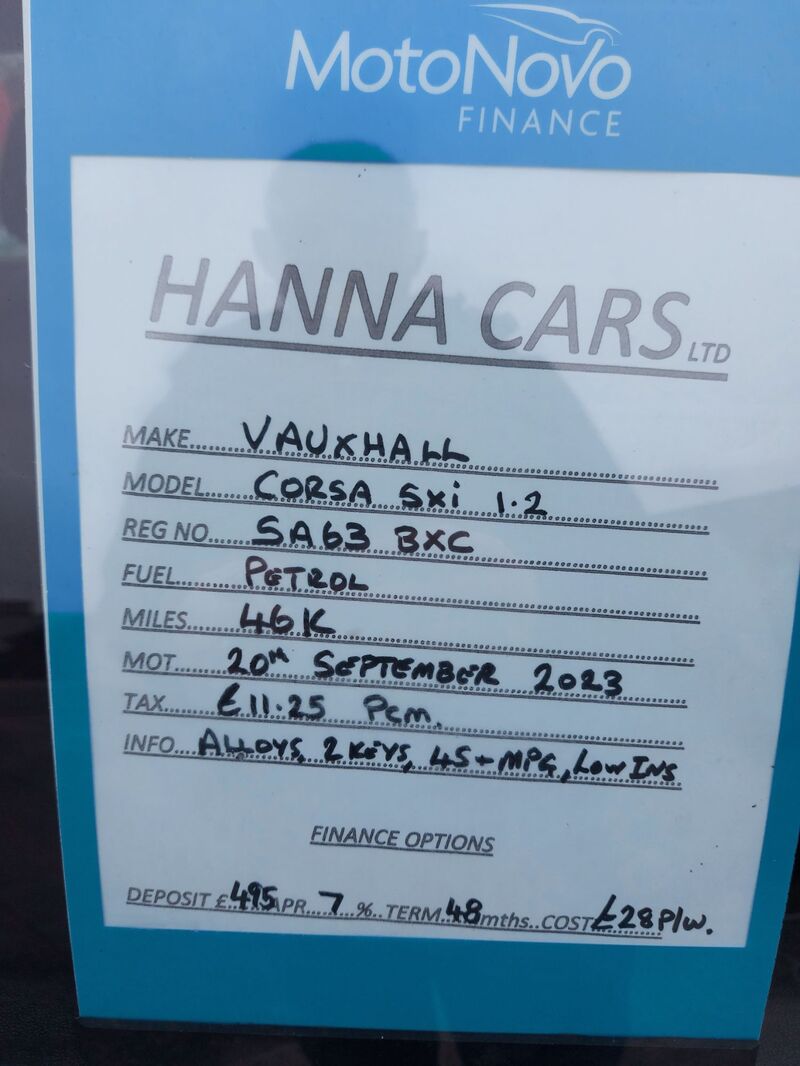 MotoNovo
FINANCE
HANNA CARS LTD
MAKE..... VAUXHALL
MODEL..... CORSA SXi 1.2
REG NO..... SA63 BXC
FUEL..... PETROL
MILES..... 46K
MOT..... 20TH SEPTEMBER 2023
TAX..... £11.25 Pcm.
INFO... ALLOYS, 2 KEYS, 45+ MPG, LOW INS
FINANCE OPTIONS
DEPOSIT £ 495 APR... 7 %.. TERM 48 mths.. COST £28 P/W.